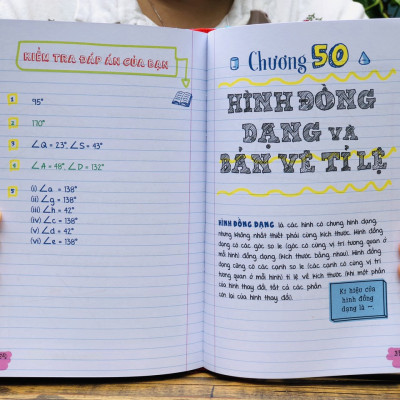 KIỂM TRA ĐÁP ÁN CỦA BẠN
1 95°
2 170°
3 ∠Q = 23°, ∠S = 43°
4 ∠A = 48°, ∠D = 132°
5 (i) ∠a = 138°
(ii) ∠g = 138°
(iii) ∠h = 42°
(iv) ∠c = 138°
(v) ∠d = 42°
(vi) ∠e = 138°
Chương 50
HÌNH ĐỒNG
DẠNG VÀ
BẢN VẼ TỈ LỆ
HÌNH ĐỒNG DẠNG là các hình có chung hình dạng,
nhưng không nhất thiết phải cùng kích thước. Hình đồng
dạng có các góc so le (góc có cùng vị trí tương quan ở
mỗi hình) đồng dạng, (kích thước bằng nhau). Hình đồng
dạng cũng có các cạnh so le (các cạnh có cùng vị trí
tương quan ở mỗi hình) tỉ lệ về kích thước (khi một phần
của hình thay đổi, tất cả các phần
còn lại của hình thay đổi).
Kí hiệu của
hình đồng
dạng là ~.